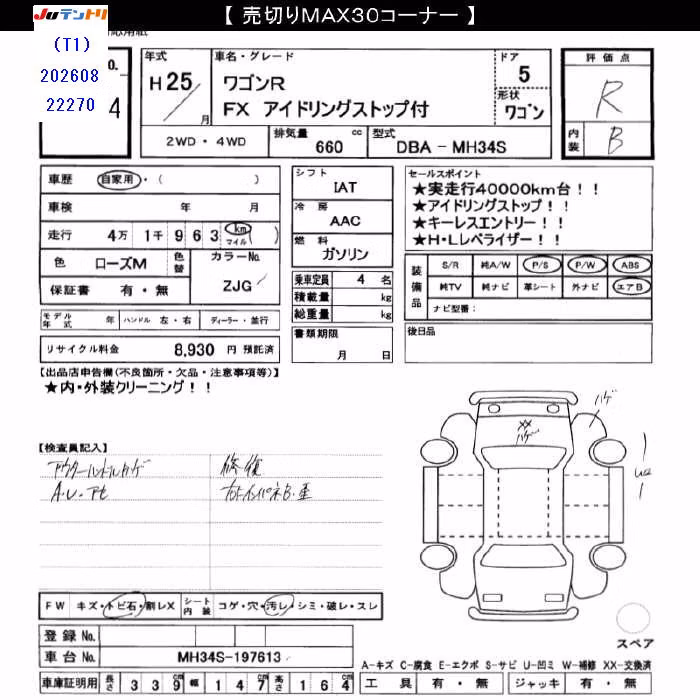 JUテントリ
【 売切りMAX30コーナー 】
(T1)
202608
22270
No.
4
年式
H 25 / 月
車名・グレード
ワゴンR
FX アイドリングストップ付
ドア
5
形状
ワゴン
評価点
R
内装
B
2WD・4WD
排気量
660 cc
型式
DBA - MH34S
車歴 自家用・( )
車検 年 月
走行 4万 1千 9 6 3 km マイル ( )
色 ローズM 色替
カラーNo.
ZJG
保証書 有・無
モデル年式 年 ハンドル 左・右 ディーラー・並行
リサイクル料金 8,930 円 預託済
シフト
IAT
冷房
AAC
燃料
ガソリン
乗車定員 4 名
積載量 kg
総重量 kg
書類期限
月 日
セールスポイント
★実走行40000km台！！
★アイドリングストップ！！
★キーレスエントリー！！
★H・Lレベライザー！！
装備品
S/R 純A/W P/S P/W ABS
純TV 純ナビ 革シート 外ナビ エアB
ナビ型番：
後日品
【出品店申告欄(不良箇所・欠品・注意事項等)】
★内・外装クリーニング！！
【検査員記入】
アウターハンドルハゲ
A.U.Pt
修復
XX
ハゲ
ハゲ
FW キズ・トビ石・割レX シート内装 コゲ・穴・汚レ・シミ・破レ・スレ
登録 No.
車台 No. MH34S-197613
車庫証明用 長さ 3 3 9 cm 幅 1 4 7 cm 高さ 1 6 4 cm
スペア
A-キズ C-腐食 E-エクボ S-サビ U-凹ミ W-補修 XX-交換済
工具 有・無 ジャッキ 有・無